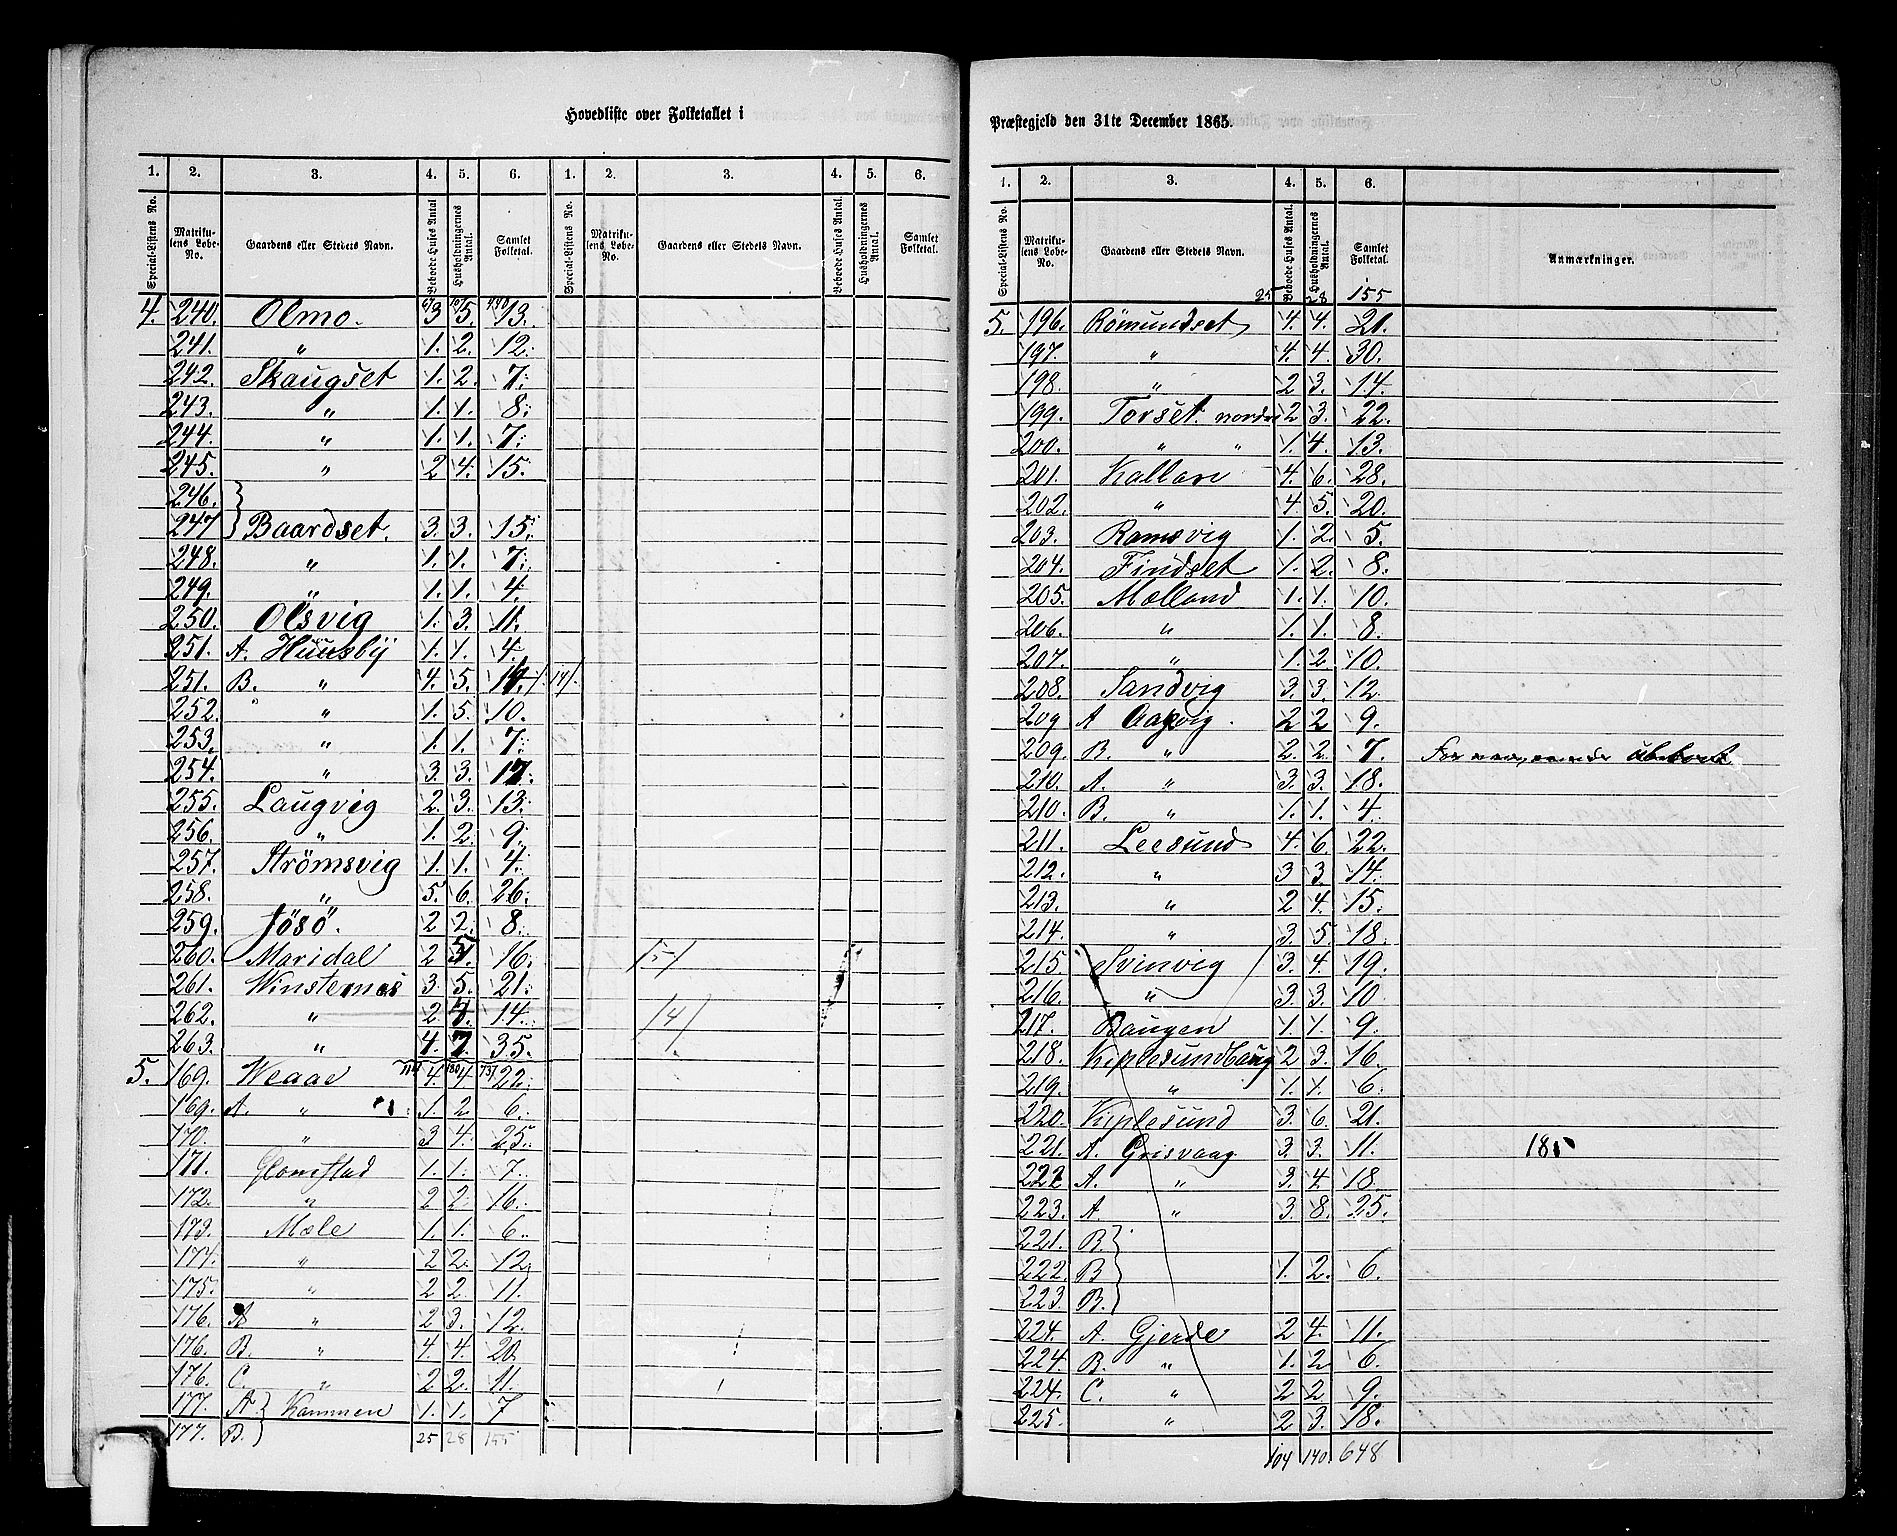 Hovedliste over Folketallet i
1. 2. 3. 4. 5. 6. 1. 2. 3. 4. 5. 6.
Special-Listens No. Matrikulens Løbe-No. Gaardens eller Stedets Navn. Beboede Huses Antal Husholdningernes Antal. Samlet Folketal. Special-Listens No. Matrikulens Løbe-No. Gaardens eller Stedets Navn. Beboede Huses Antal. Husholdningernes Antal. Samlet Folketal.
4. 240. Olmo. 3 5. 13.
241. " 1. 2. 12.
242. Skaugset 1. 2. 7.
243. " 1. 1. 8.
244. " 1. 1. 7.
245. " 2 4. 15.
246. }
247 } Baardset. 3. 3. 15.
248. " 1. 1. 7.
249. " 1. 1. 4.
250. Olsvig 1. 3. 11.
251. A. Huusby 1. 1. 4.
251. B. " 4. 5. 14.
252. " 1. 5. 10.
253. " 1. 1. 7.
254. " 3. 3. 17.
255. Laugvig 2. 3. 13.
256. " 1. 2. 9.
257. Strömsvig 1. 1. 4.
258. " 5. 6. 26.
259. Jösö. 2 2. 8.
260. Maridal 2 5 16.
261. Winsternes 3. 5. 21.
262. " 2. 14.
263. " 4. 7. 35.
5. 169. Weaae 4. 4. 22.
169. A. " 1. 2 6.
170. " 3 4. 25.
171. Gomstad 1. 1. 7.
172. " 2 2. 16.
173. Mæle 1. 1. 6.
174. " 2 2. 12.
175. " 2 2. 11.
176. A " 2 3. 12.
176. B. " 4. 4. 20.
176. C. " 2 2. 11.
177. A } Kammen 1. 1. 7
177. B. } 25 28 155
Præstegjeld den 31te December 1865.
1. 2. 3. 4. 5. 6.
Special-Listens No. Matrikulens Løbe-No. Gaardens eller Stedets Navn. Beboede Huses Antal. Husholdningernes Antal. Samlet Folketal. Anmærkninger.
25 28 155
5. 196. Römundset 4. 4. 21.
197. " 4. 4. 30.
198. " 2 3. 14.
199. Torset nordre 2 3. 22.
200. " " 1. 4. 13.
201. Kallan 4. 6. 28.
202. " 4 5. 20.
203. Ramsvig 1. 2. 5.
204. Findset 1. 2. 8.
205. Mælland 1. 1. 10.
206. " 1. 1. 8.
207. " 1. 2 10.
208. Sandvig 3. 3. 12.
209 A Aasvig. 2 2 9.
209. B. " 2. 2. 7.
210. A. " 3. 3. 18.
210. B. " 1. 1. 4.
211. Leesund 4. 6. 22.
212. " 3 3. 14.
213. " 2 4. 15.
214. " 3. 5. 18.
215. Svinvig 3. 4. 19.
216. " 3. 3. 10.
217. Baugen 1. 1. 9.
218. Kiplesundbaug 2 3. 16.
219. " 1. 1. 6.
220. Kiplesund 3. 6. 21.
221. A. Grisvaag 3. 3. 11.
222 A. " 3. 4. 18.
223. A. " 3. 8. 25.
221. B. }
222. B } 1. 2. 6.
223. B. }
224. A. Gjerde 2 4. 11.
224. B. " 1. 2 6.
224. C. " 2 2 9.
225. " 2 3. 18.
104 140 648